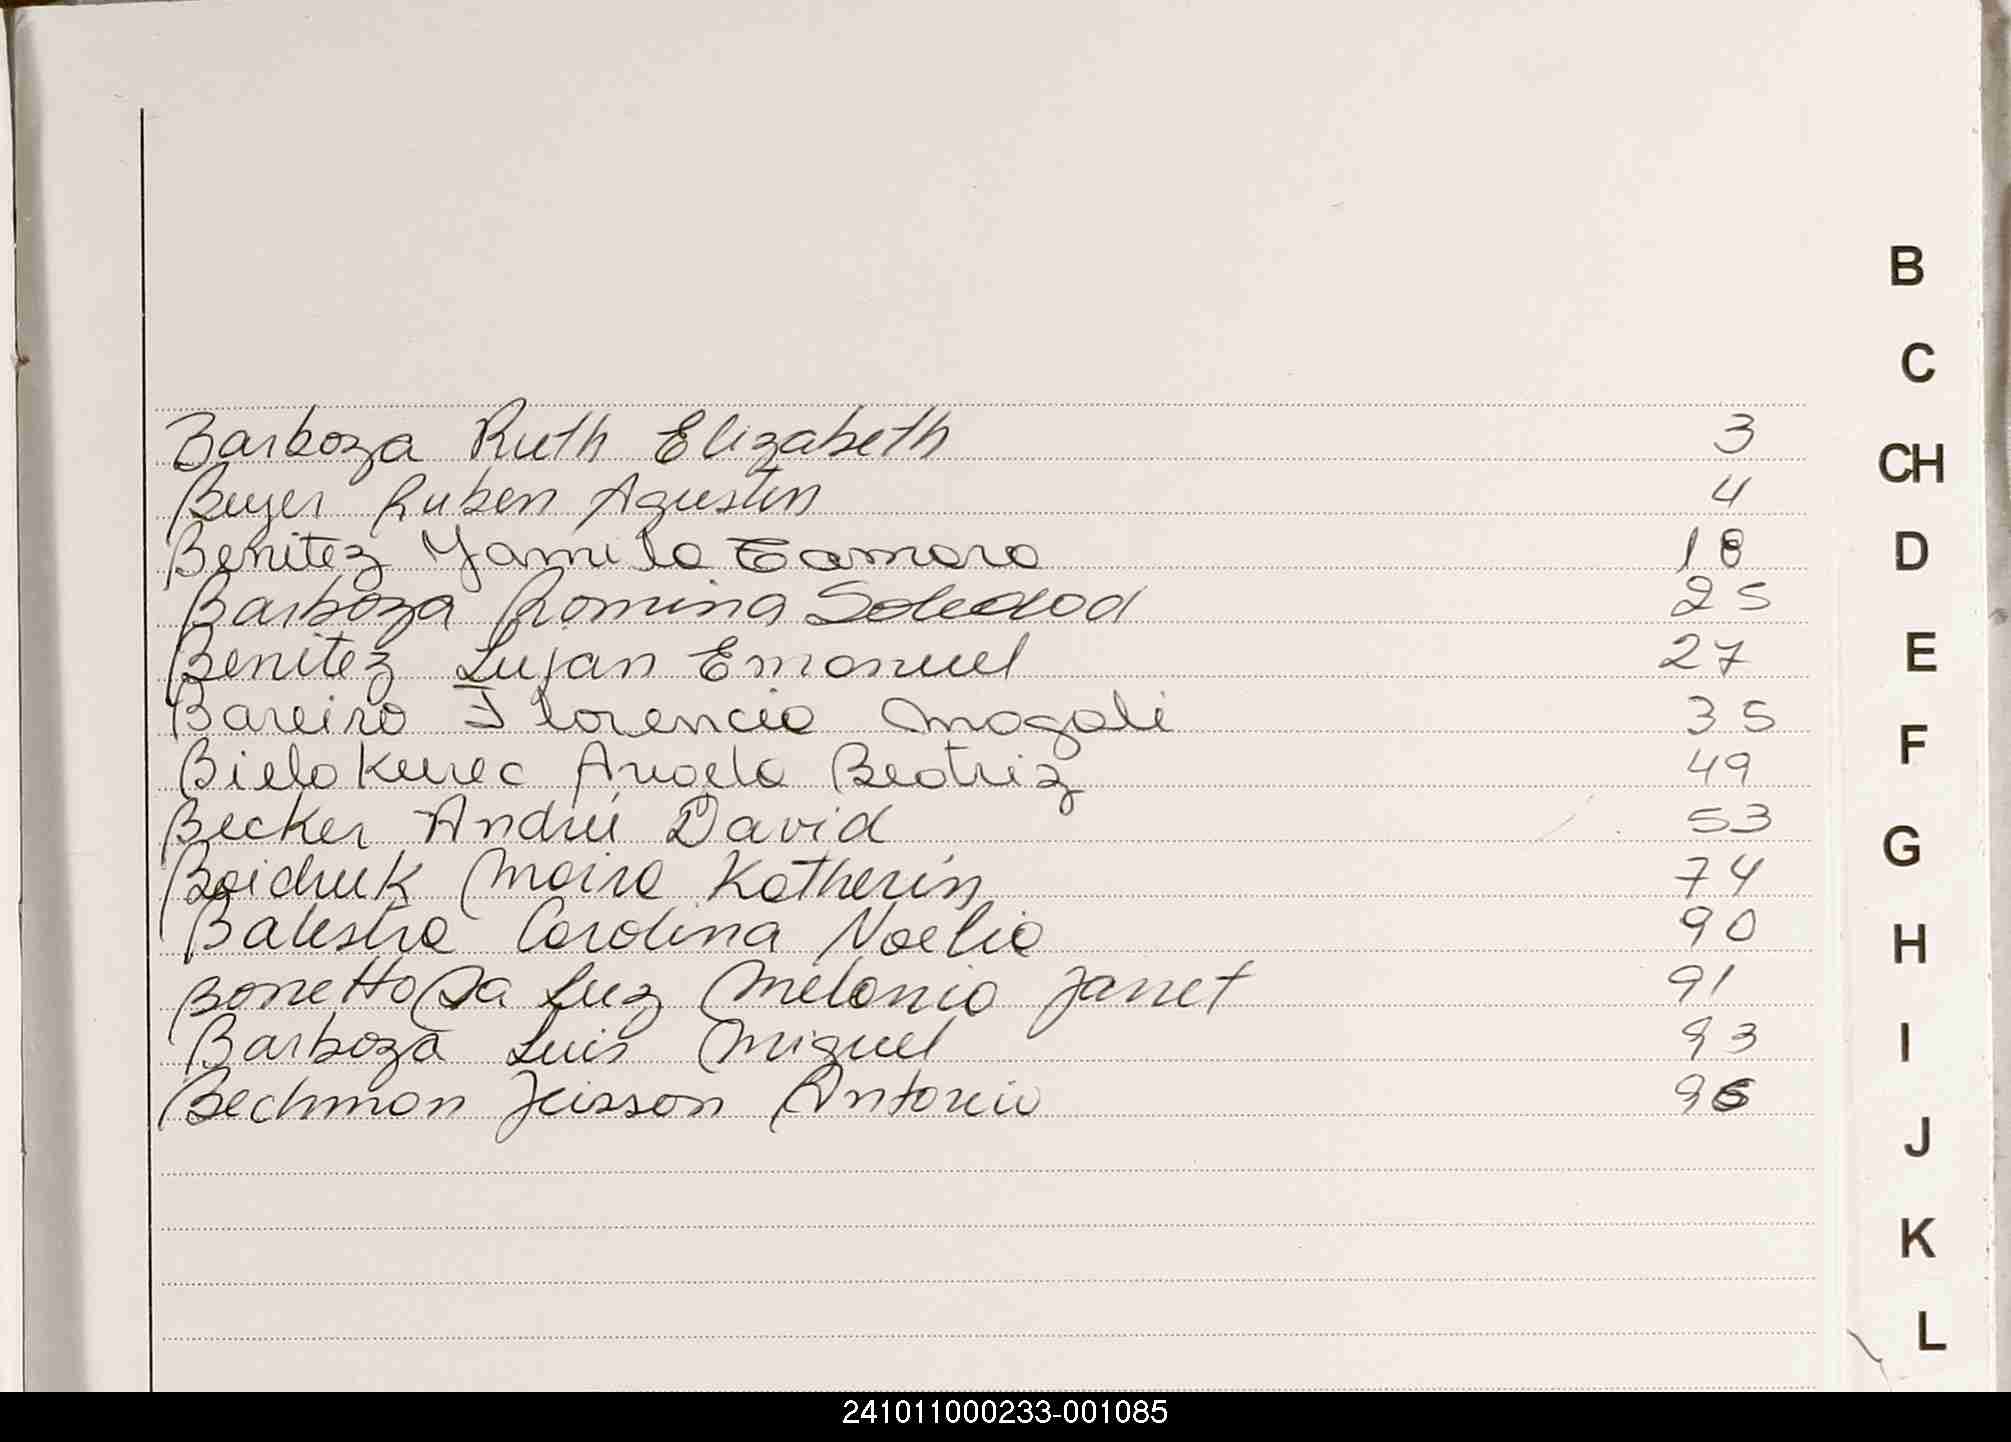 Barboza Ruth Elizabeth 3
Beyer Ruben Agustin 4
Benitez Yamila Tamara 18
Barboza Romina Soledad 25
Benitez Lujan Emanuel 27
Bareiro Florencia Magali 35
Bielakurec Angela Beatriz 49
Becker André David 53
Boidruk Maira Katherin 74
Balestra Carolina Noelia 90
Bonetto Da Luz Melania Janet 91
Barboza Luis Miguel 93
Bechmon Jeisson Antonio 96
B
C
CH
D
E
F
G
H
I
J
K
L
241011000233-001085